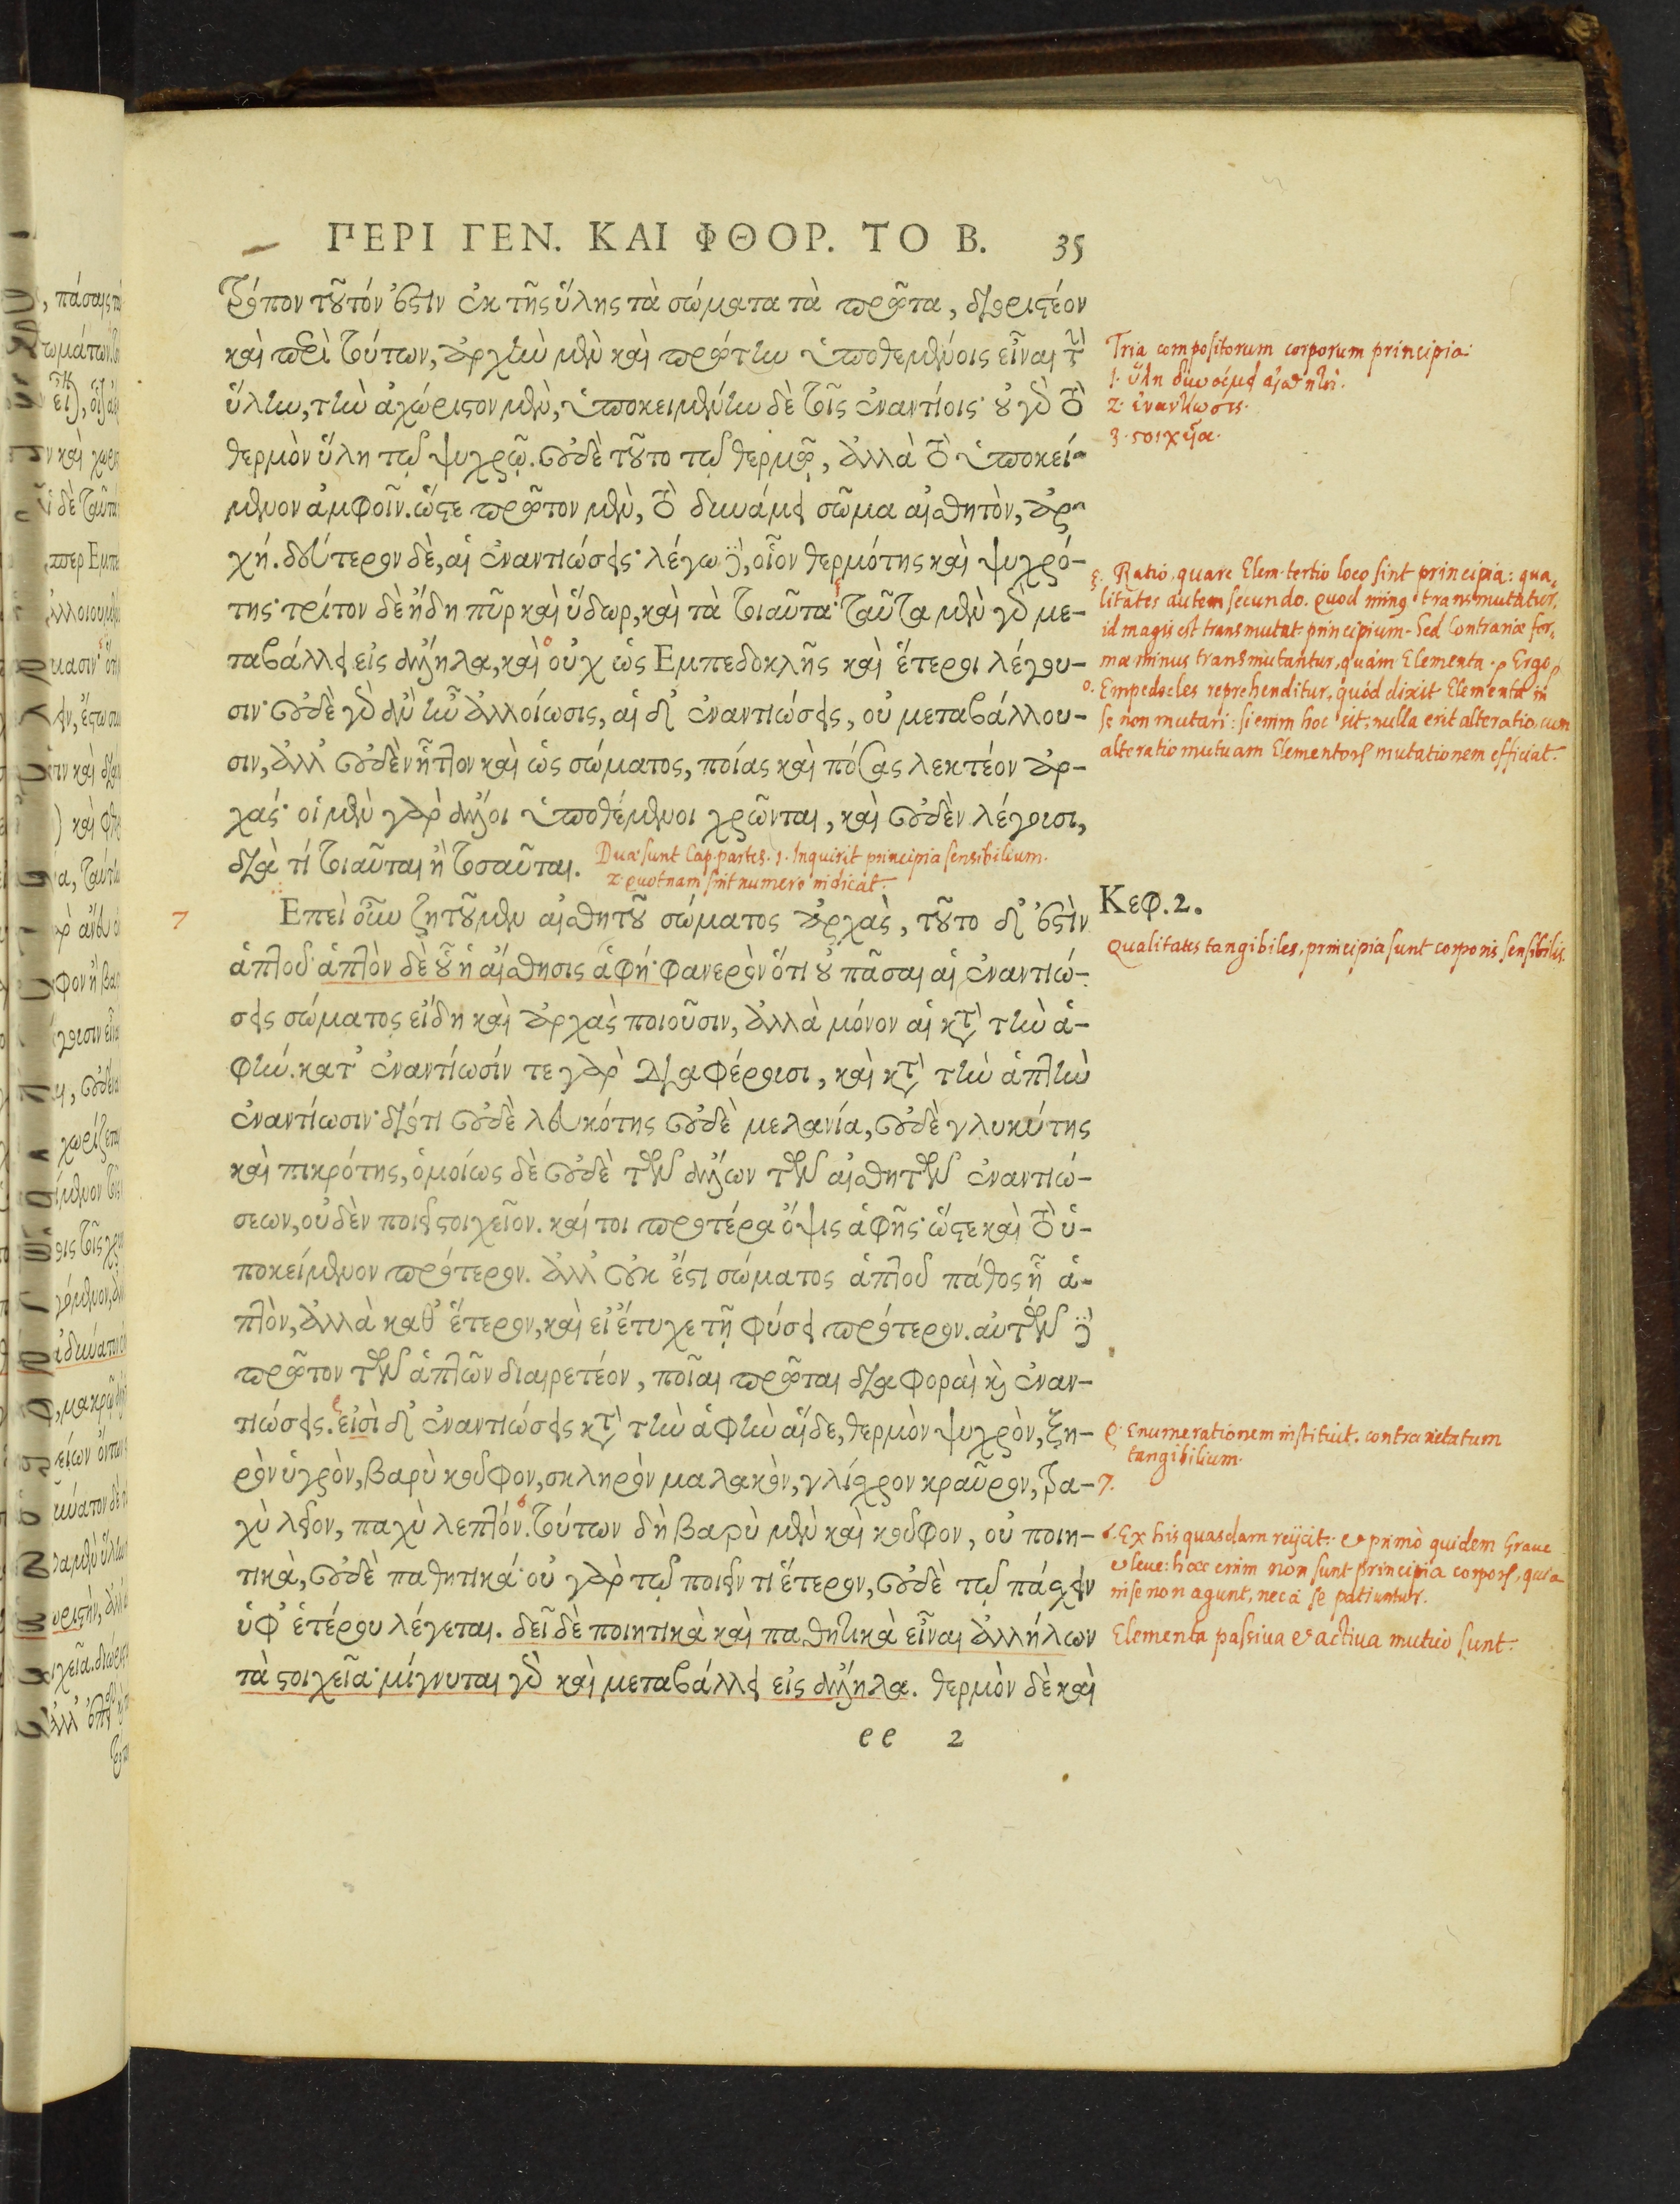 ΠΕΡΙ ΓΕΝ. ΚΑΙ ΦΘΟΡ. ΤΟ Β. 35
τρόπον τοῦτόν ἐστιν ἐκ τῆς ὕλης τὰ σώματα τὰ πρῶτα, διοριστέον
καὶ περὶ τούτων, ἀρχὴν μὲν καὶ πρώτην ὑποθεμένοις εἶναι τὴν
ὕλην, τὴν ἀχώριστον μὲν, ὑποκειμένην δὲ τοῖς ἐναντίοις· οὐ γὰρ τὸ
θερμὸν ὕλη τῷ ψυχρῷ. οὐδὲ τοῦτο τῷ θερμῷ, ἀλλὰ τὸ ὑποκεί-
μενον ἀμφοῖν. ὥστε πρῶτον μὲν, τὸ δυνάμει σῶμα αἰσθητὸν, ἀρ-
χή. δεύτερον δὲ, αἱ ἐναντιώσεις· λέγω δὲ, οἷον θερμότης καὶ ψυχρό-
της· τρίτον δὲ ἤδη πῦρ καὶ ὕδωρ, καὶ τὰ τοιαῦτα· ταῦτα μὲν γὰρ με-
ταβάλλει εἰς ἄλληλα, καὶ οὐχ ὡς Εμπεδοκλῆς καὶ ἕτεροι λέγου-
σιν· οὐδὲ γὰρ ἂν ἦν ἀλλοίωσις, αἱ δ' ἐναντιώσεις, οὐ μεταβάλλου-
σιν, ἀλλ' οὐδὲν ἧττον καὶ ὡς σώματος, ποίας καὶ πόσας λεκτέον ἀρ-
χάς· οἱ μὲν γὰρ ἄλλοι ὑποθέμενοι χρῶνται, καὶ οὐδὲν λέγουσι,
διὰ τί τοιαῦται ἢ τοσαῦται.
Duæ sunt Cap. partes. 1. Inquirit principia sensibilium.
2. quotnam sint numero indicat.
7 Επεὶ οὖν ζητοῦμεν αἰσθητοῦ σώματος ἀρχὰς, τοῦτο δ' ἐστὶν
ἁπτοῦ· ἁπτὸν δὲ οὗ ἡ αἴσθησις ἁφή· φανερὸν ὅτι οὐ πᾶσαι αἱ ἐναντιώ-
σεις σώματος εἴδη καὶ ἀρχὰς ποιοῦσιν, ἀλλὰ μόνον αἱ κατὰ τὴν ἁ-
φήν. κατ' ἐναντίωσίν τε γὰρ διαφέρουσι, καὶ κατὰ τὴν ἁπτὴν
ἐναντίωσιν· διότι οὐδὲ λευκότης οὐδὲ μελανία, οὐδὲ γλυκύτης
καὶ πικρότης, ὁμοίως δὲ οὐδὲ τῶν ἄλλων τῶν αἰσθητῶν ἐναντιώ-
σεων, οὐδὲν ποιεῖ στοιχεῖον. καί τοι προτέρα ὄψις ἁφῆς· ὥστε καὶ τὸ ὑ-
ποκείμενον πρότερον. ἀλλ' οὐκ ἔστι σώματος ἁπτοῦ πάθος ᾗ ἁ-
πτὸν, ἀλλὰ καθ' ἕτερον, καὶ εἰ ἔτυχε τῇ φύσει πρότερον. αὐτῶν δὲ
πρῶτον τῶν ἁπτῶν διαιρετέον, ποῖαι πρῶται διαφοραὶ καὶ ἐναν-
τιώσεις. εἰσὶ δ' ἐναντιώσεις κατὰ τὴν ἁφὴν αἵδε, θερμὸν ψυχρὸν, ξη-
ρὸν ὑγρὸν, βαρὺ κοῦφον, σκληρὸν μαλακὸν, γλίσχρον κραῦρον, τρα-
χὺ λεῖον, παχὺ λεπτόν. τούτων δὴ βαρὺ μὲν καὶ κοῦφον, οὐ ποιη-
τικὰ, οὐδὲ παθητικά· οὐ γὰρ τῷ ποιεῖν τι ἕτερον, οὐδὲ τῷ πάσχειν
ὑφ' ἑτέρου λέγεται. δεῖ δὲ ποιητικὰ καὶ παθητικὰ εἶναι ἀλλήλων
τὰ στοιχεῖα· μίγνυται γὰρ καὶ μεταβάλλει εἰς ἄλληλα. θερμὸν δὲ καὶ
ee 2
Tria compositorum corporum principia:
1. ὕλη δυνάμει αἰσθητή.
2. ἐναντίωσις.
3. στοιχεῖα.
ξ. Ratio, quare Elem. tertio loco sint principia: qua-
litates autem secundo. quod minus transmutatur,
id magis est transmutat. principium. Sed Contrariæ for-
mæ minus transmutantur, quàm Elementa. Ergo
ο. Empedocles reprehenditur, quòd dixit Elementa in
se non mutari: si enim hoc sit, nulla erit alteratio, cum
alteratio mutuam Elementorum mutationem efficiat.
Κεφ. 2.
Qualitates tangibiles, principia sunt corporis sensibilis.
ρ. Enumerationem instituit contrarietatum
tangibilium.
7.
σ. Ex his quasdam reijcit: et primò quidem Graue
et leue: hæc enim non sunt principia corporum, quia
in se non agunt, nec à se patiuntur.
Elementa passiua et actiua mutuò sunt.